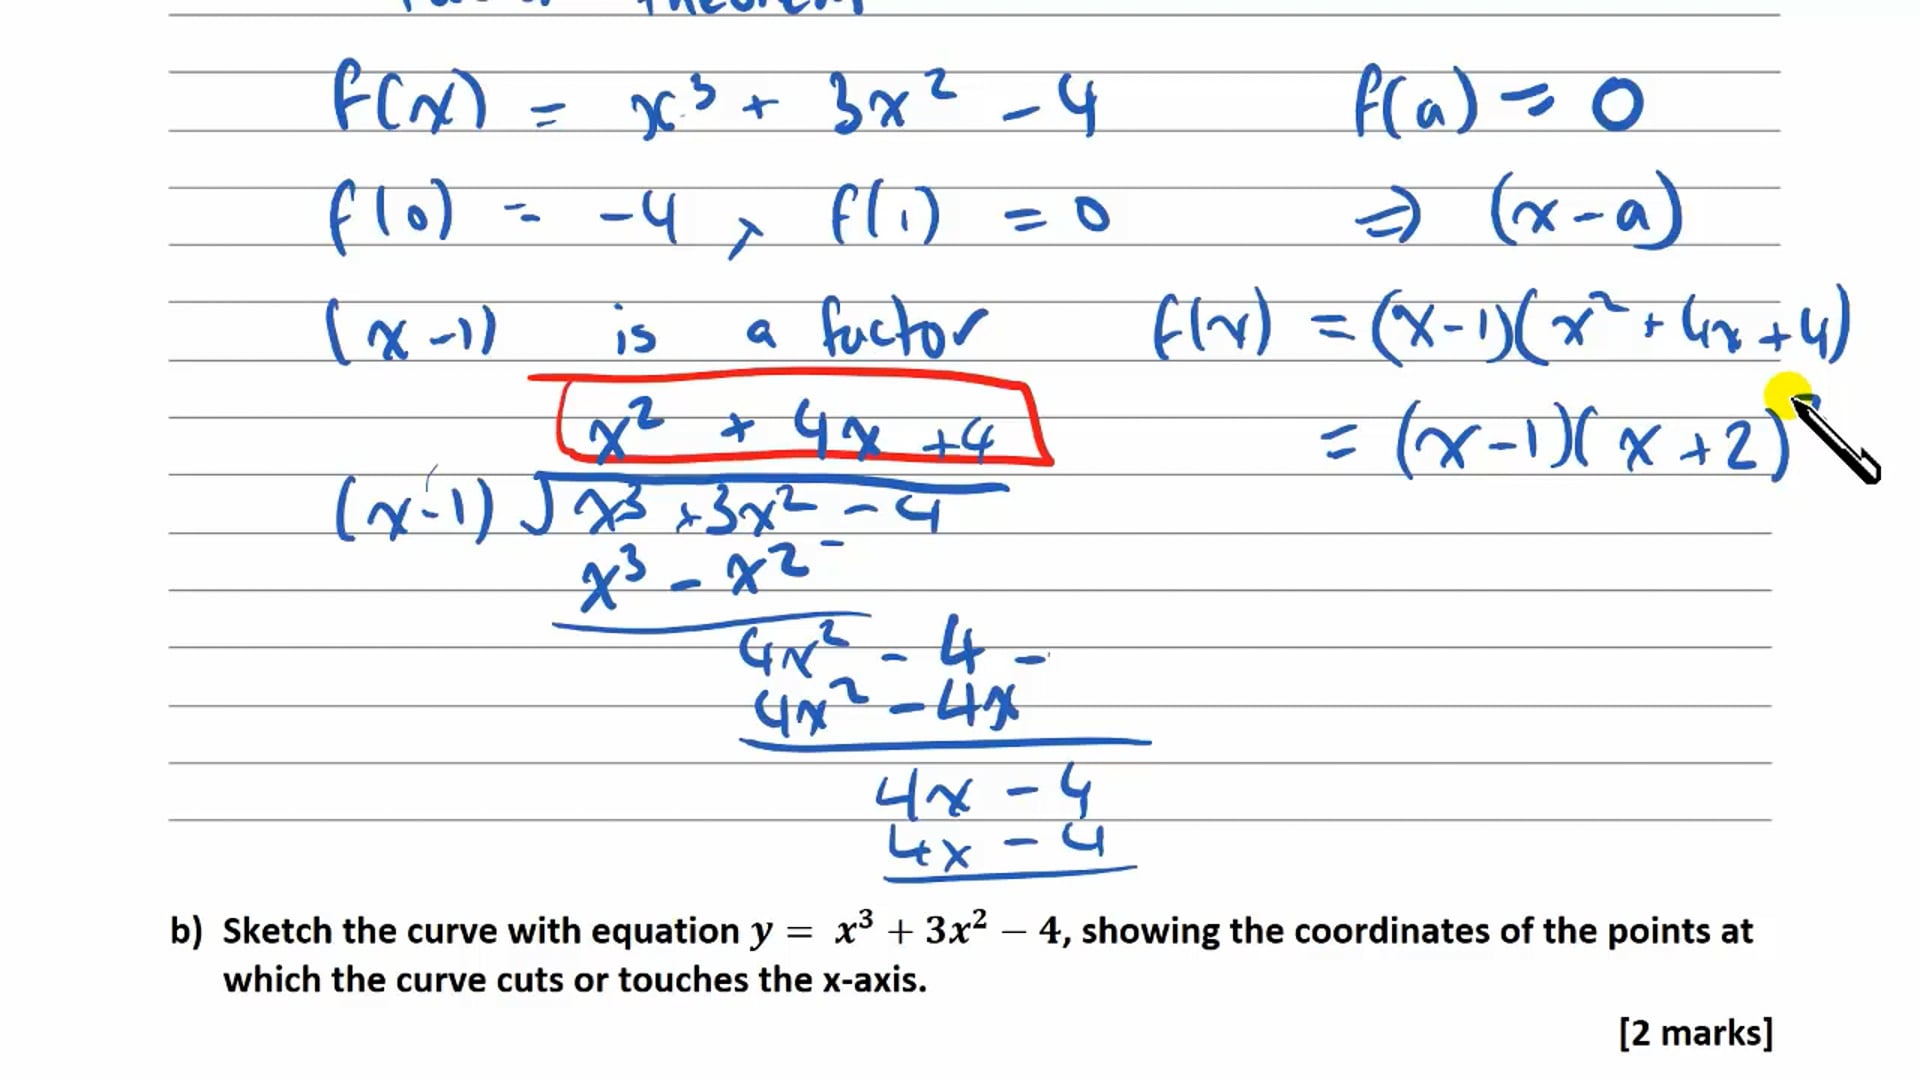 Factor Theorem
f(x) = x³ + 3x² - 4
f(a) = 0
f(0) = -4, f(1) = 0
⇒ (x-a)
(x-1) is a factor
f(x) = (x-1)(x² + 4x + 4)
= (x-1)(x+2)²
x² + 4x + 4
(x-1) √ x³ + 3x² - 4
x³ - x² -
4x² - 4 -
4x² - 4x
4x - 4
4x - 4
b) Sketch the curve with equation y = x³ + 3x² − 4, showing the coordinates of the points at
which the curve cuts or touches the x-axis.
[2 marks]